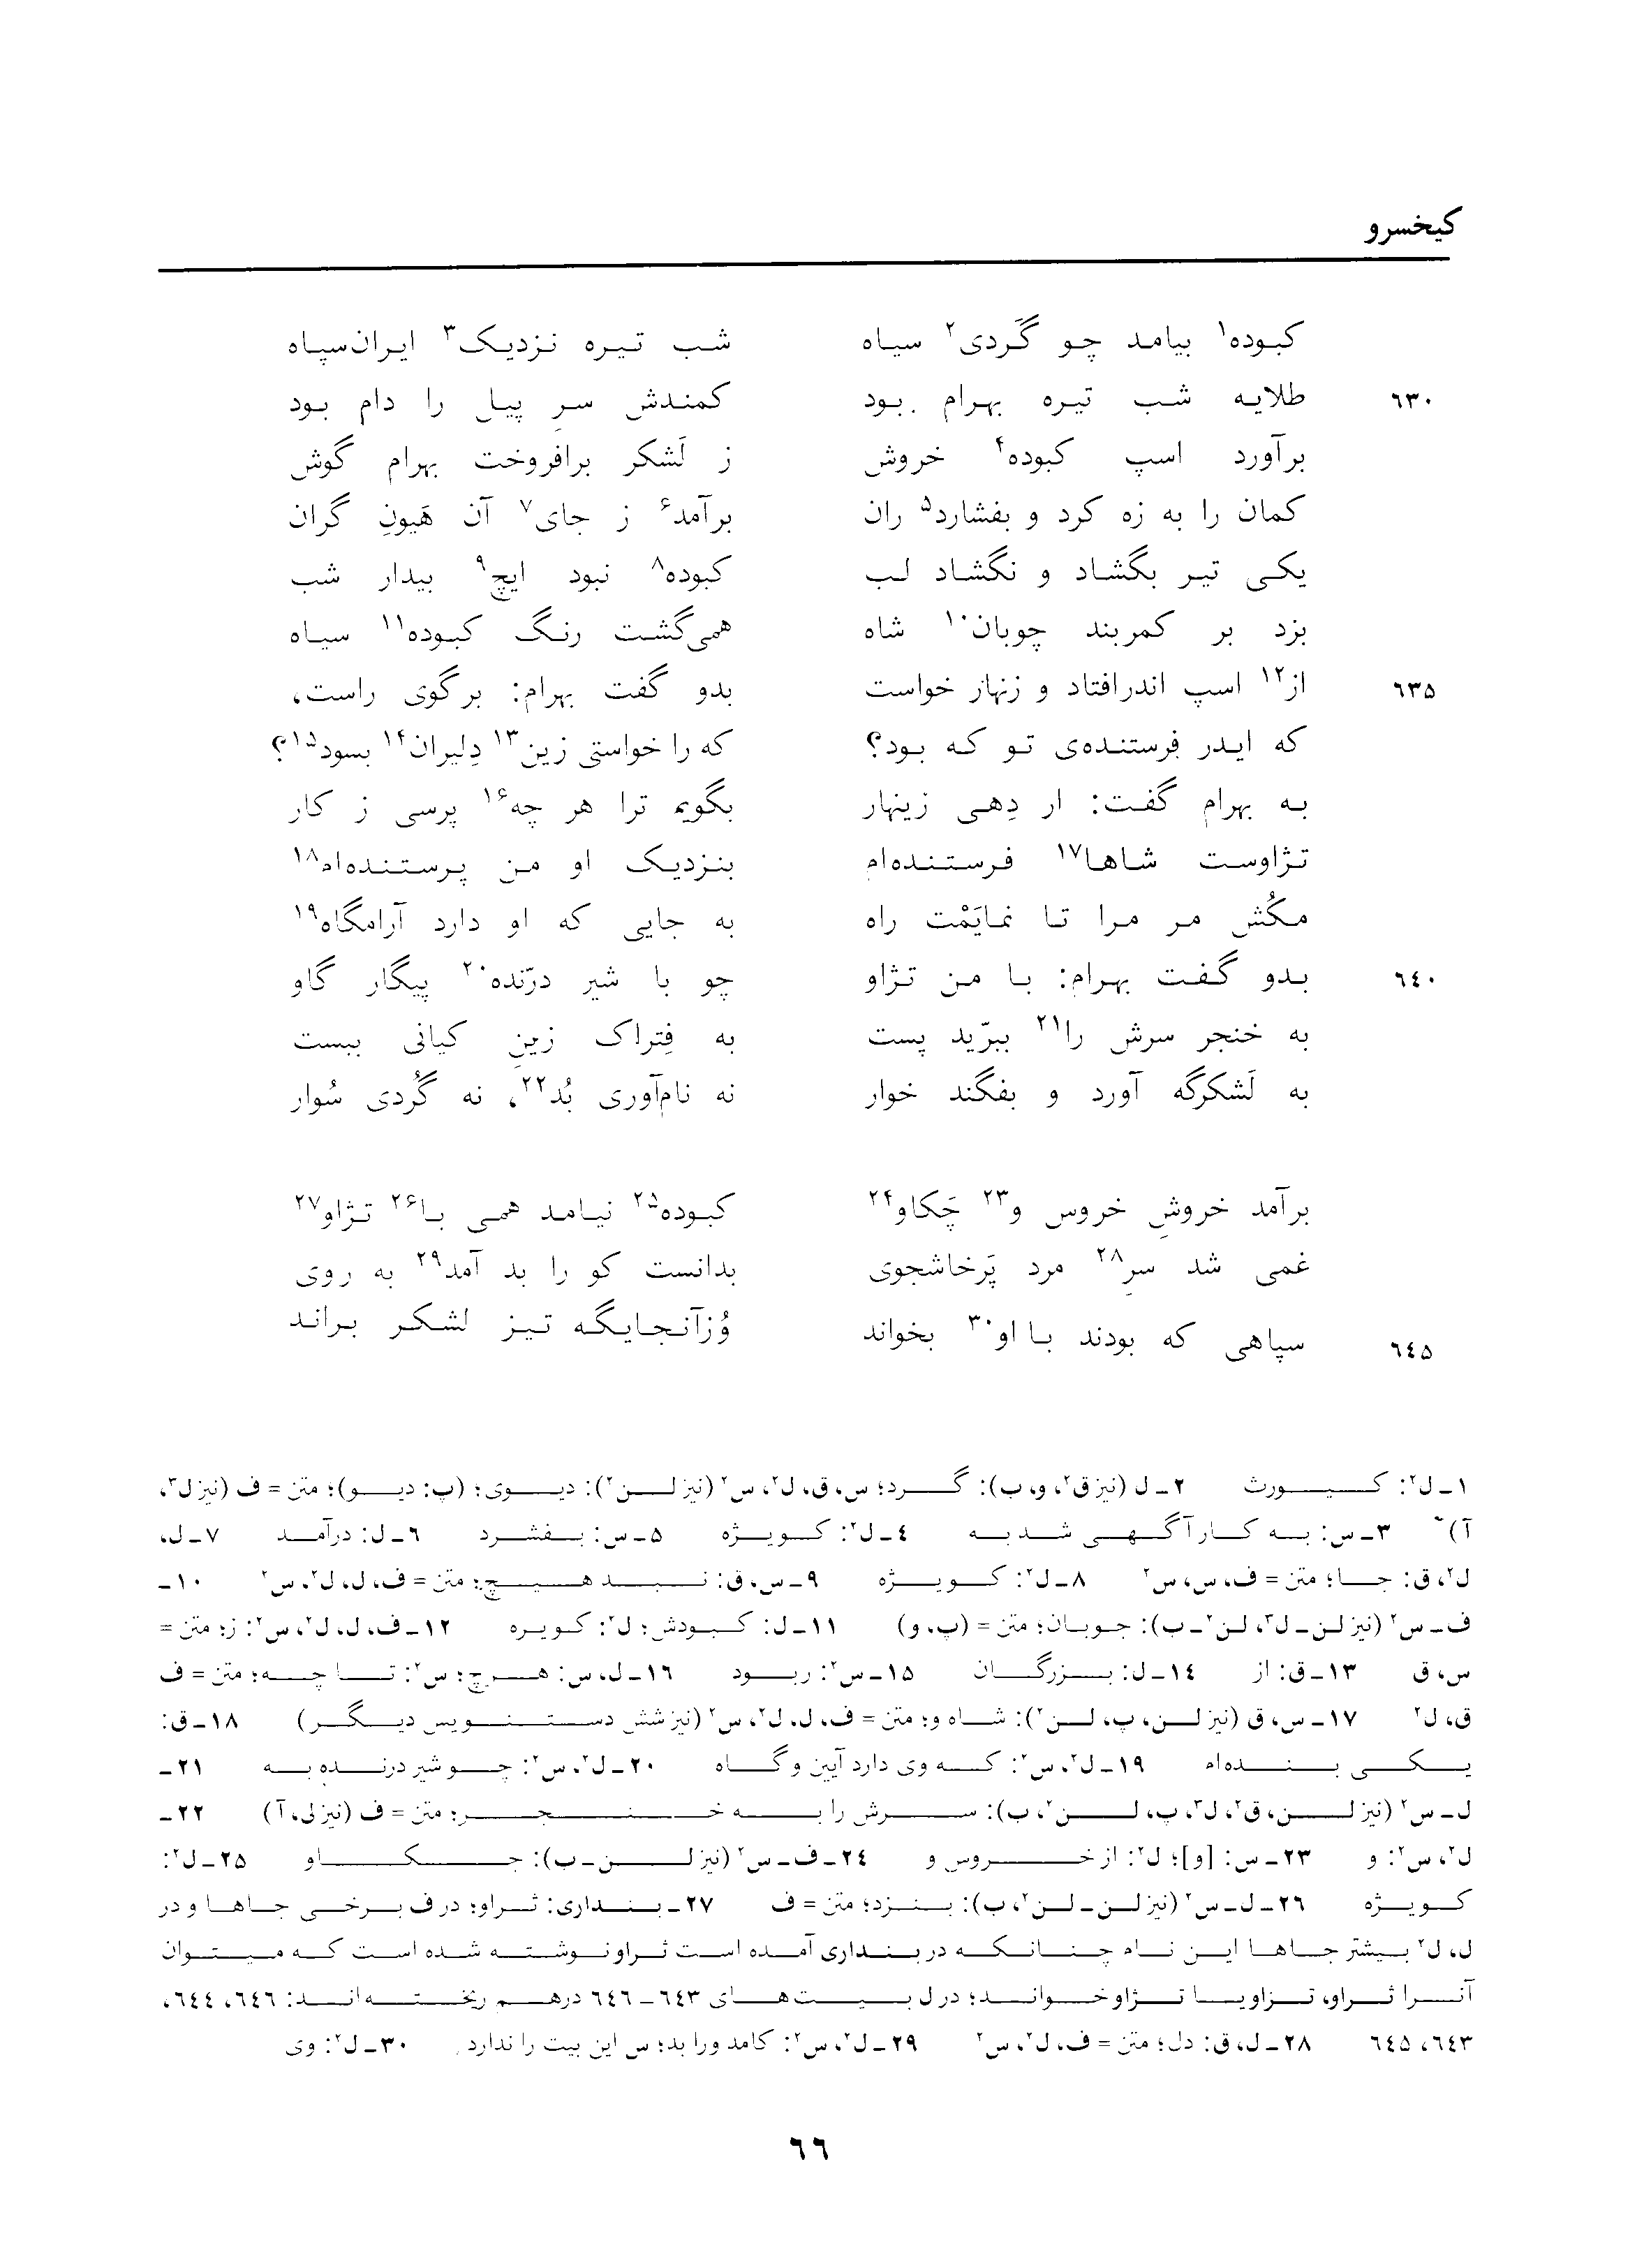 کیخسرو
کبوده۱ بیامد چو گَردی۲ سیاه شب تیره نزدیک۳ ایران‌سپاه
۶۳۰ طلایه شب تیره بهرام بود کمندش سرِ پیل را دام بود
برآورد اسپ کبوده۴ خروش ز لَشکر برافروخت بهرام گوش
کمان را به زه کرد و بفشارد۵ ران برآمد۶ ز جای۷ آن هَیونِ گران
یکی تیر بگشاد و نگشاد لب کبوده۸ نبود ایچ۹ بیدار شب
بزد بر کمربند چوبان۱۰ شاه همی‌گشت رنگ کبوده۱۱ سیاه
۶۳۵ از۱۲ اسپ اندرافتاد و زنهار خواست بدو گفت بهرام: برگوی راست،
که ایدر فرستنده‌ی تو که بود؟ که را خواستی زین۱۳ دِلیران۱۴ بسود۱۵؟
به بهرام گفت: ار دِهی زینهار بگویم ترا هر چه۱۶ پرسی ز کار
تژاوست شاها۱۷ فرستنده‌ام بنزدیک او من پرستنده‌ام۱۸
مکُش مر مرا تا نمایَمْت راه به جایی که او دارد آرامگاه۱۹
۶۴۰ بدو گفت بهرام: با من تژاو چو با شیر درّنده۲۰ پیگار گاو
به خنجر سرش را۲۱ ببرّید پست به فِتراک زینِ کیانی ببست
به لَشکرگه آورد و بفگند خوار نه نام‌آوری بُد۲۲، نه گُردی سُوار
برآمد خروشِ خروس و۲۳ چَکاو۲۴ کبوده۲۵ نیامد همی با۲۶ تژاو۲۷
غمی شد سرِ۲۸ مرد پَرخاشجوی بدانست کو را بد آمد۲۹ به روی
۶۴۵ سپاهی که بودند با او۳۰ بخواند وُزآنجایگه تیز لشکر براند
۱ـ ل۲: کیورث ۲ـ ل (نیز ق۲، و، ب): گرد؛ س، ق، ل۲، س۲ (نیز لن۲): دیوی؛ (پ: دیو)؛ متن = ف (نیز ل۳،
آ) ۳ـ س: به کار آگهی شد به ۴ـ ل۲: کویژه ۵ـ س: بفشرد ۶ـ ل: درآمد ۷ـ ل،
ل۲، ق: جا؛ متن = ف، س، س۲ ۸ـ ل۲: کویژه ۹ـ س، ق: نبد هیچ؛ متن = ف، ل، ل۲، س۲ ۱۰ـ
ف ـ س۲ (نیز لن ـ ل۳، لن۲ ـ ب): جوبان؛ متن = (پ، و) ۱۱ـ ل: کبودش؛ ل۲: کویره ۱۲ـ ف، ل، ل۲، س۲: ز؛ متن =
س، ق ۱۳ـ ق: از ۱۴ـ ل: بزرگان ۱۵ـ س۲: ربود ۱۶ـ ل، س: هرچ؛ س۲: تا چه؛ متن = ف
ق، ل۲ ۱۷ـ س، ق (نیز لن، پ، لن۲): شاه و؛ متن = ف، ل، ل۲، س۲ (نیز شش دستنویس دیگر) ۱۸ـ ق:
یکی بنده‌ام ۱۹ـ ل۲، س۲: که وی دارد آیین و گاه ۲۰ـ ل۲، س۲: چو شیر درنده به ۲۱ـ
ل ـ س۲ (نیز لن، ق۲، ل۳، پ، لن۲، ب): سرش را به خنجر؛ متن = ف (نیز لی، آ) ۲۲ـ
ل۲، س۲: و ۲۳ـ س: [و]؛ ل۲: از خروس و ۲۴ـ ف ـ س۲ (نیز لن ـ ب): جکاو ۲۵ـ ل۲:
کویژه ۲۶ـ ل ـ س۲ (نیز لن ـ لن۲، ب): بنزد؛ متن = ف ۲۷ـ بنداری: ثراو؛ در ف برخی جاها و در
ل، ل۲ بیشتر جاها این نام چنانکه در بنداری آمده است ثراو نوشته شده است که میتوان
آنرا ثراو، تزاو یا تژاو خواند؛ در ل بیت‌های ۶۴۳ ـ ۶۴۶ درهم ریخته‌اند: ۶۴۶، ۶۴۴،
۶۴۳، ۶۴۵ ۲۸ـ ل، ق: دل؛ متن = ف، ل۲، س۲ ۲۹ـ ل۲، س۲: کامد ورا بد؛ س این بیت را ندارد ۳۰ـ ل۲: وی
۶۶